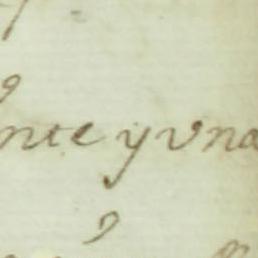 nte y vna